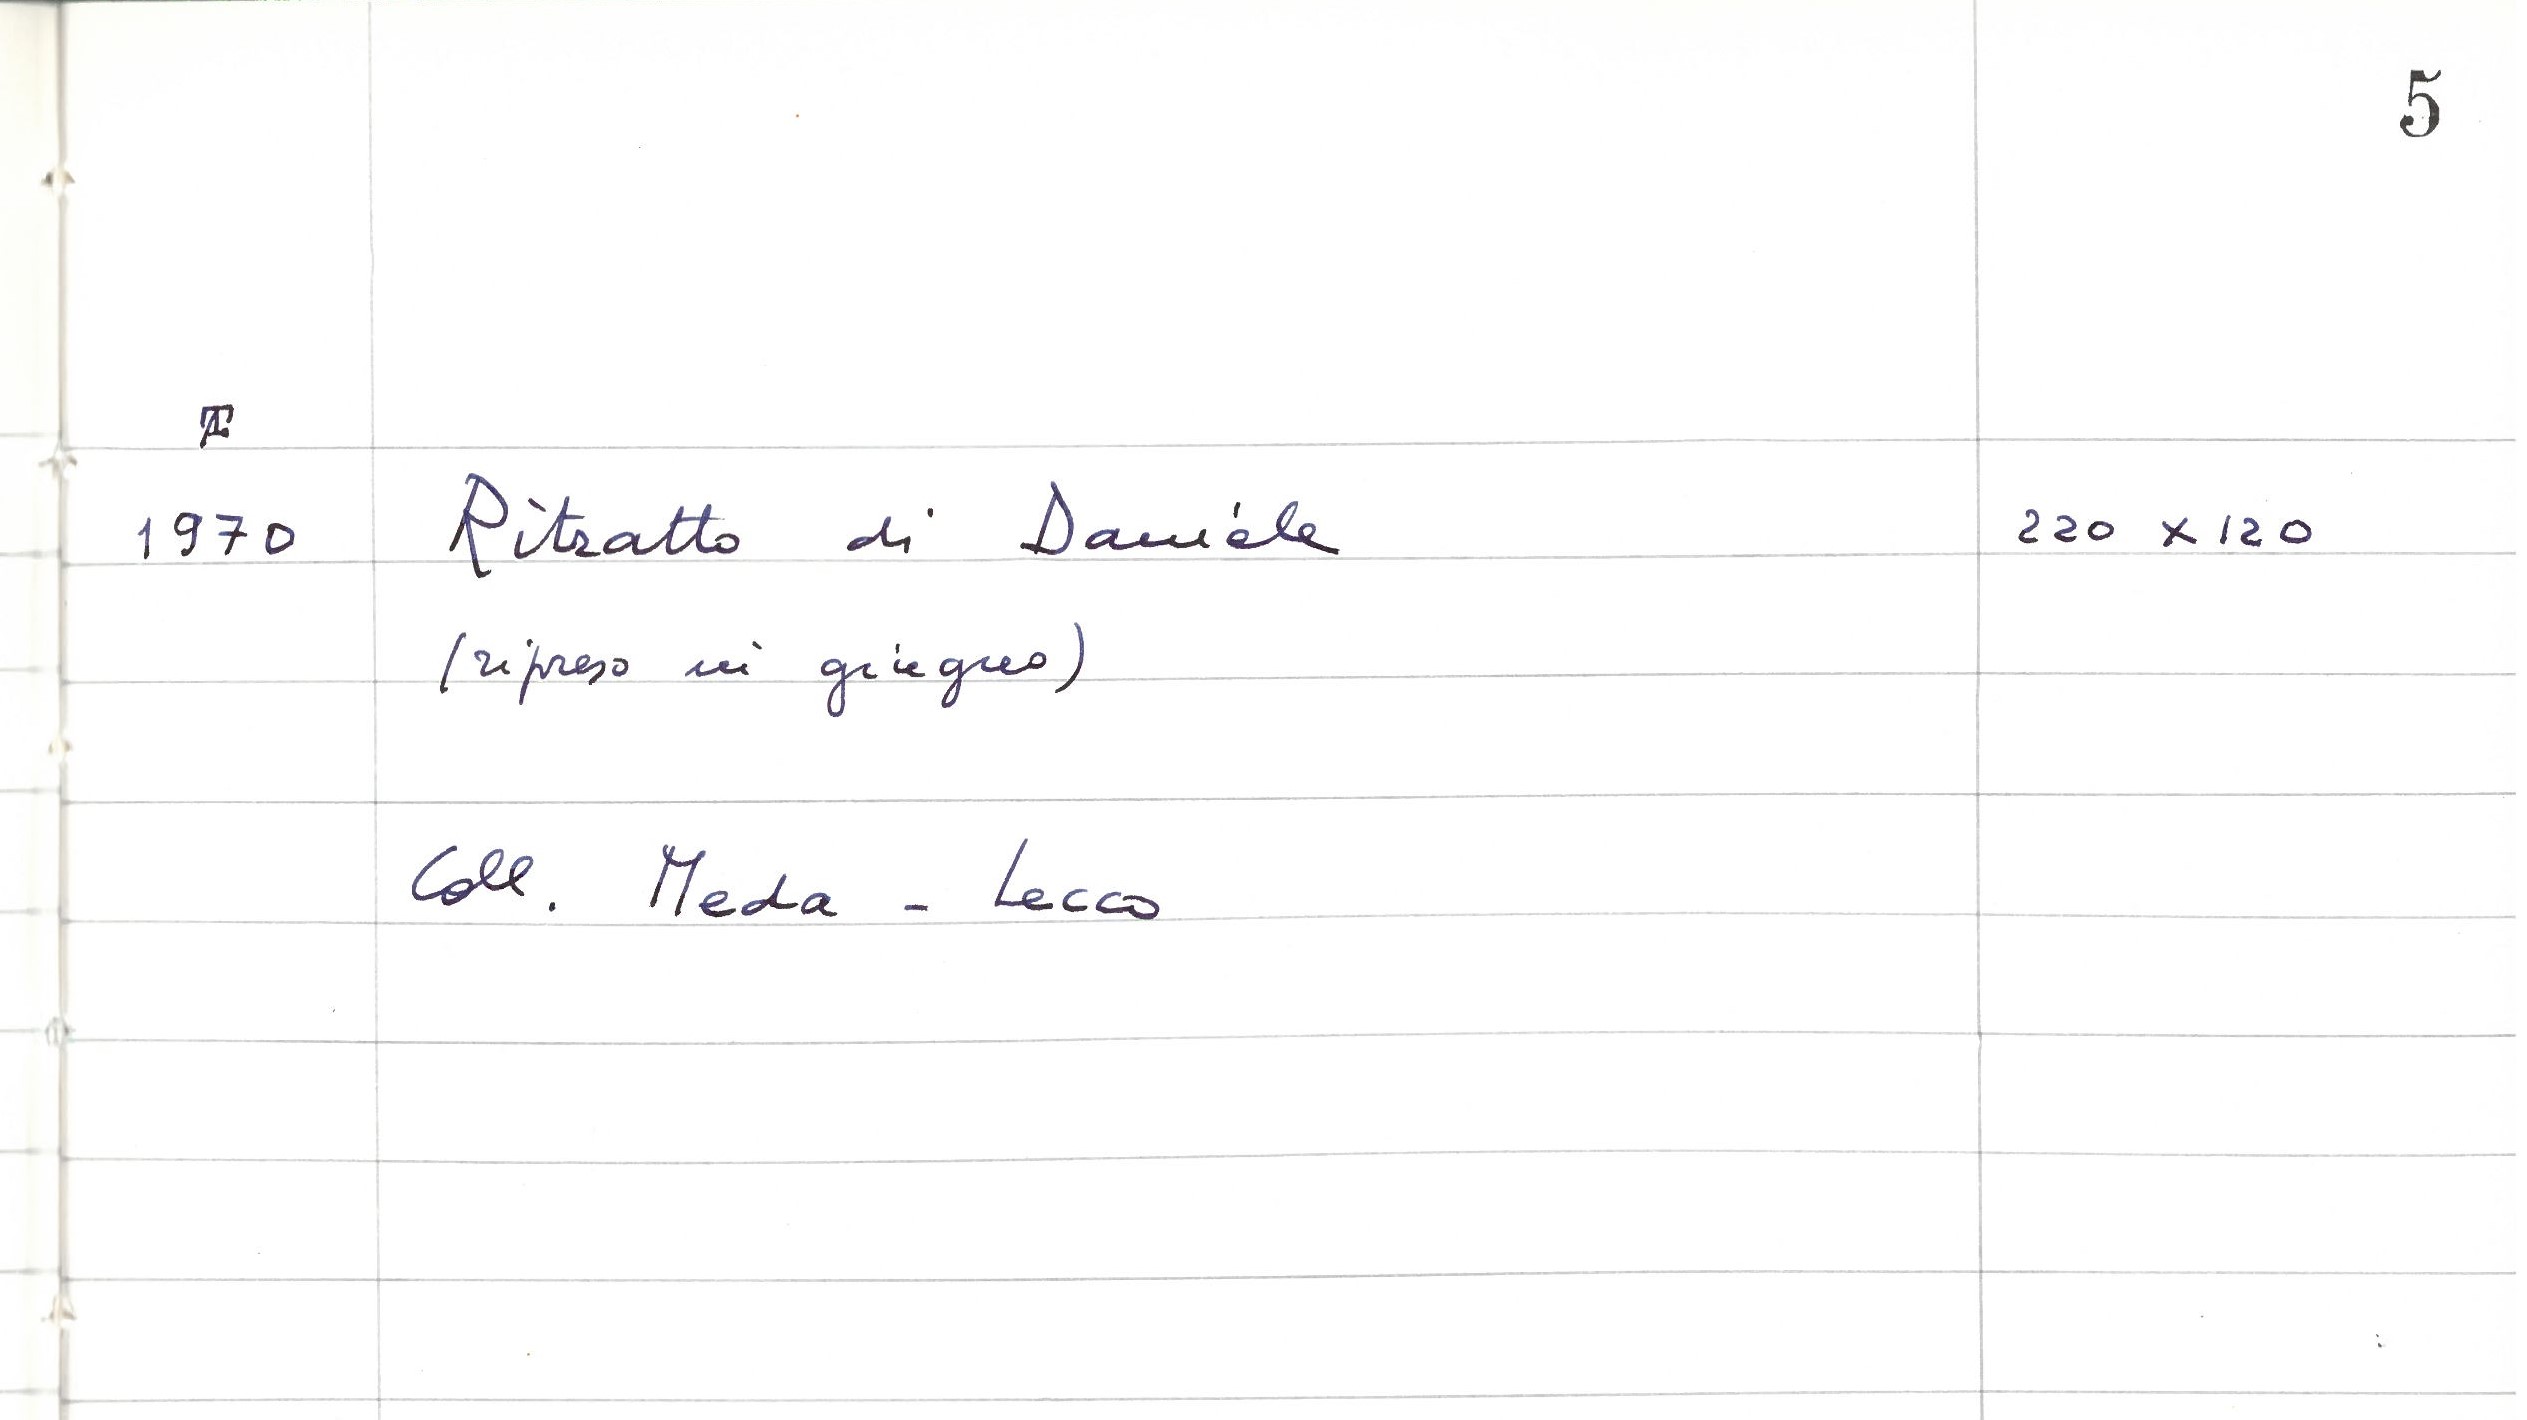 5
1970 Ritratto di Danièle 220 x 120
(ripreso in giugno)
Coll. Meda - Lecco